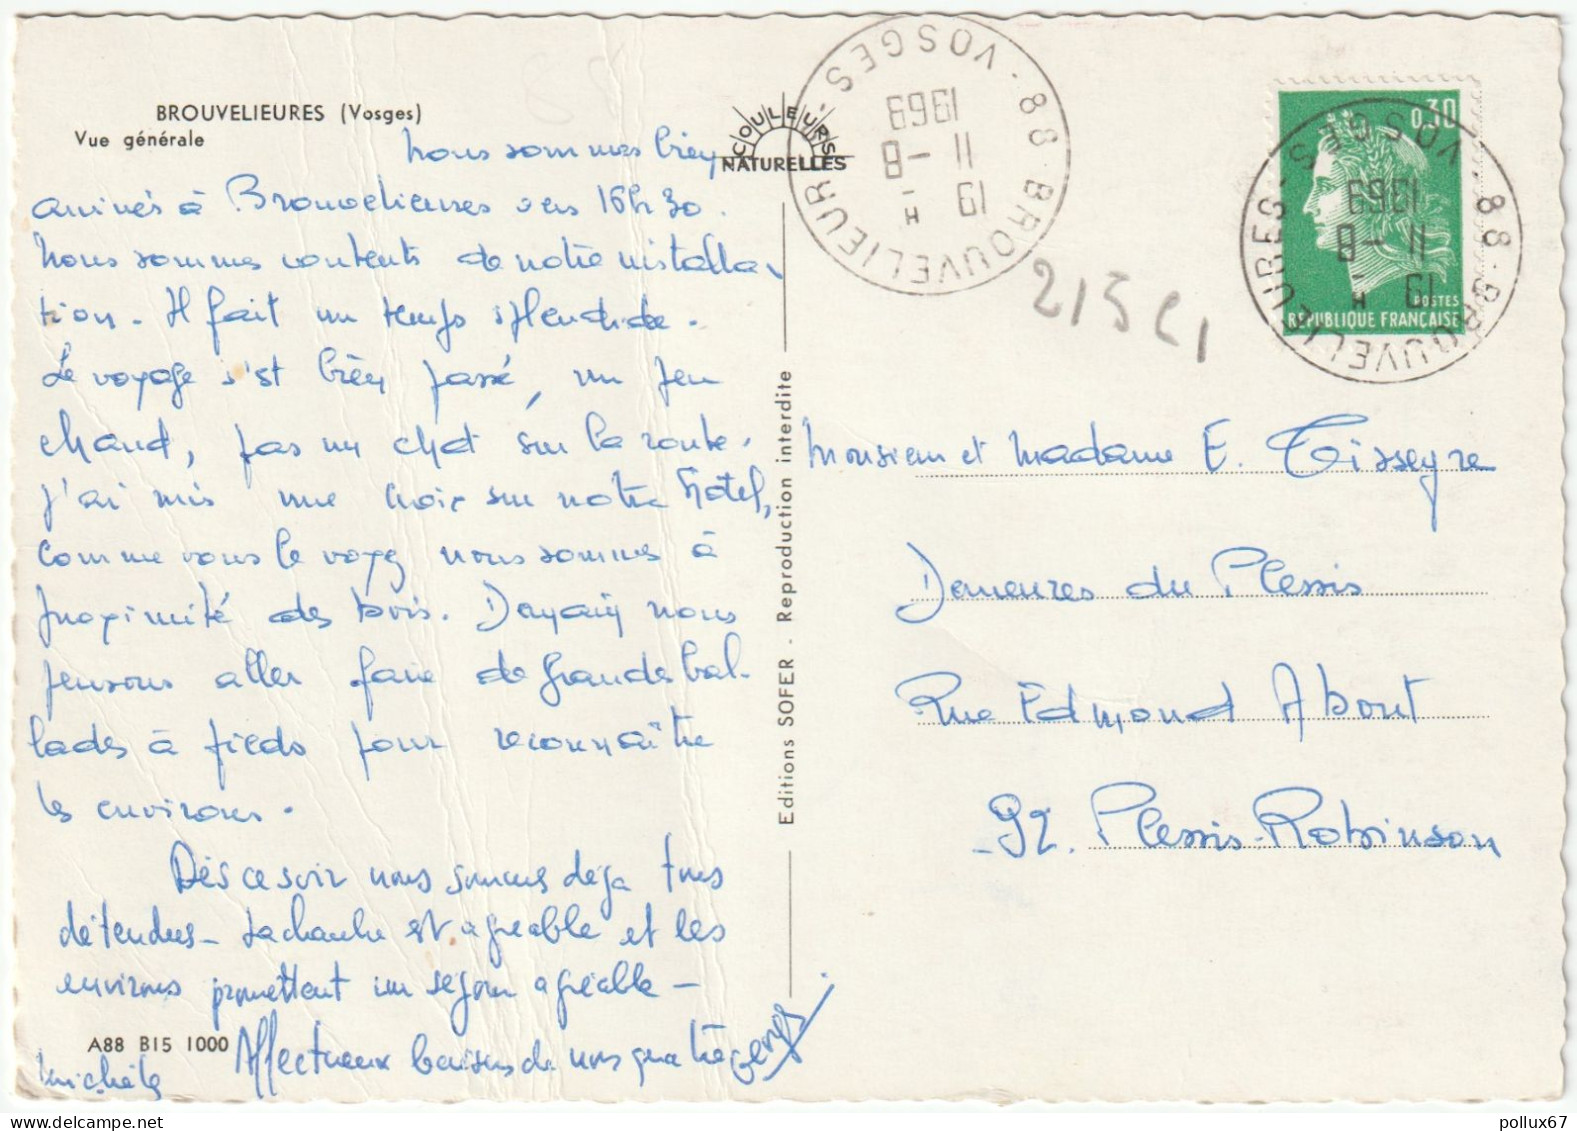 BROUVELIEURES (Vosges)
Vue générale
Nous sommes bien
arrivés à Brouvelieures vers 16h30.
Nous sommes contents de notre installa-
tion. Il fait un temps splendide.
Le voyage s'est bien passé, un peu
chaud, pas un chat sur la route.
J'ai mis une croix sur notre hôtel,
comme vous le voyez nous sommes à
proximité des bois. Demain nous
pensons aller faire de grandes bal-
lades à pieds pour reconnaître
les environs.
Dès ce soir nous sommes déjà tous
détendus - La chambre est agréable et les
environs promettent un séjour agréable -
Affectueux baisers de nous quatre
Michèle
A88 B15 1000
COULEURS
NATURELLES
Editions SOFER - Reproduction interdite
88 - BROUVELIEURES - VOSGES
19 H
11 - 8
1969
215 C1
0,30
POSTES
REPUBLIQUE FRANÇAISE
88 - BROUVELIEURES - VOSGES
19 H
11 - 8
1969
Monsieur et Madame E. Tisseyre
Demeures du Plessis
Rue Edmond About
92. Plessis-Robinson
pollux67